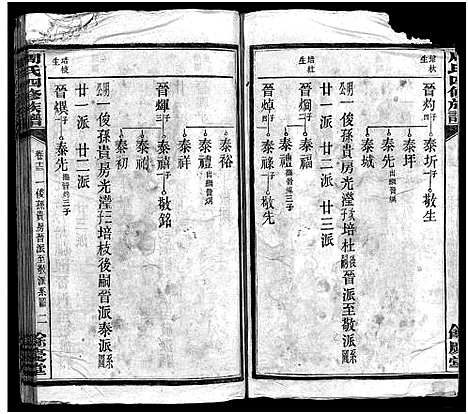 周氏四修族譜
培秋
生
晉灼子二
泰圻子一
敬生
泰坪
泰先 出繼晉熼
泰城
培杜
生
晉烱子二
泰福
泰禮 出繼晉煇三子
晉焯子一
泰祿子一
敬先
廿二派 廿三派
一俊孫貴房光瀅子培杜後嗣晉派至敬派系圖
泰裕
泰禮 出繼晉烱
泰祥
培枝
生
晉煇子三
泰禧子一
敬銘
泰禎
泰初
晉熼子
泰先 撫晉灼三子
廿一派 廿二派
一俊孫貴房光瀅子培枝後嗣晉派泰派系圖
周氏四修族譜
卷十三 一俊孫貴房晉派至敬派系圖 二
餘慶堂
餘慶堂